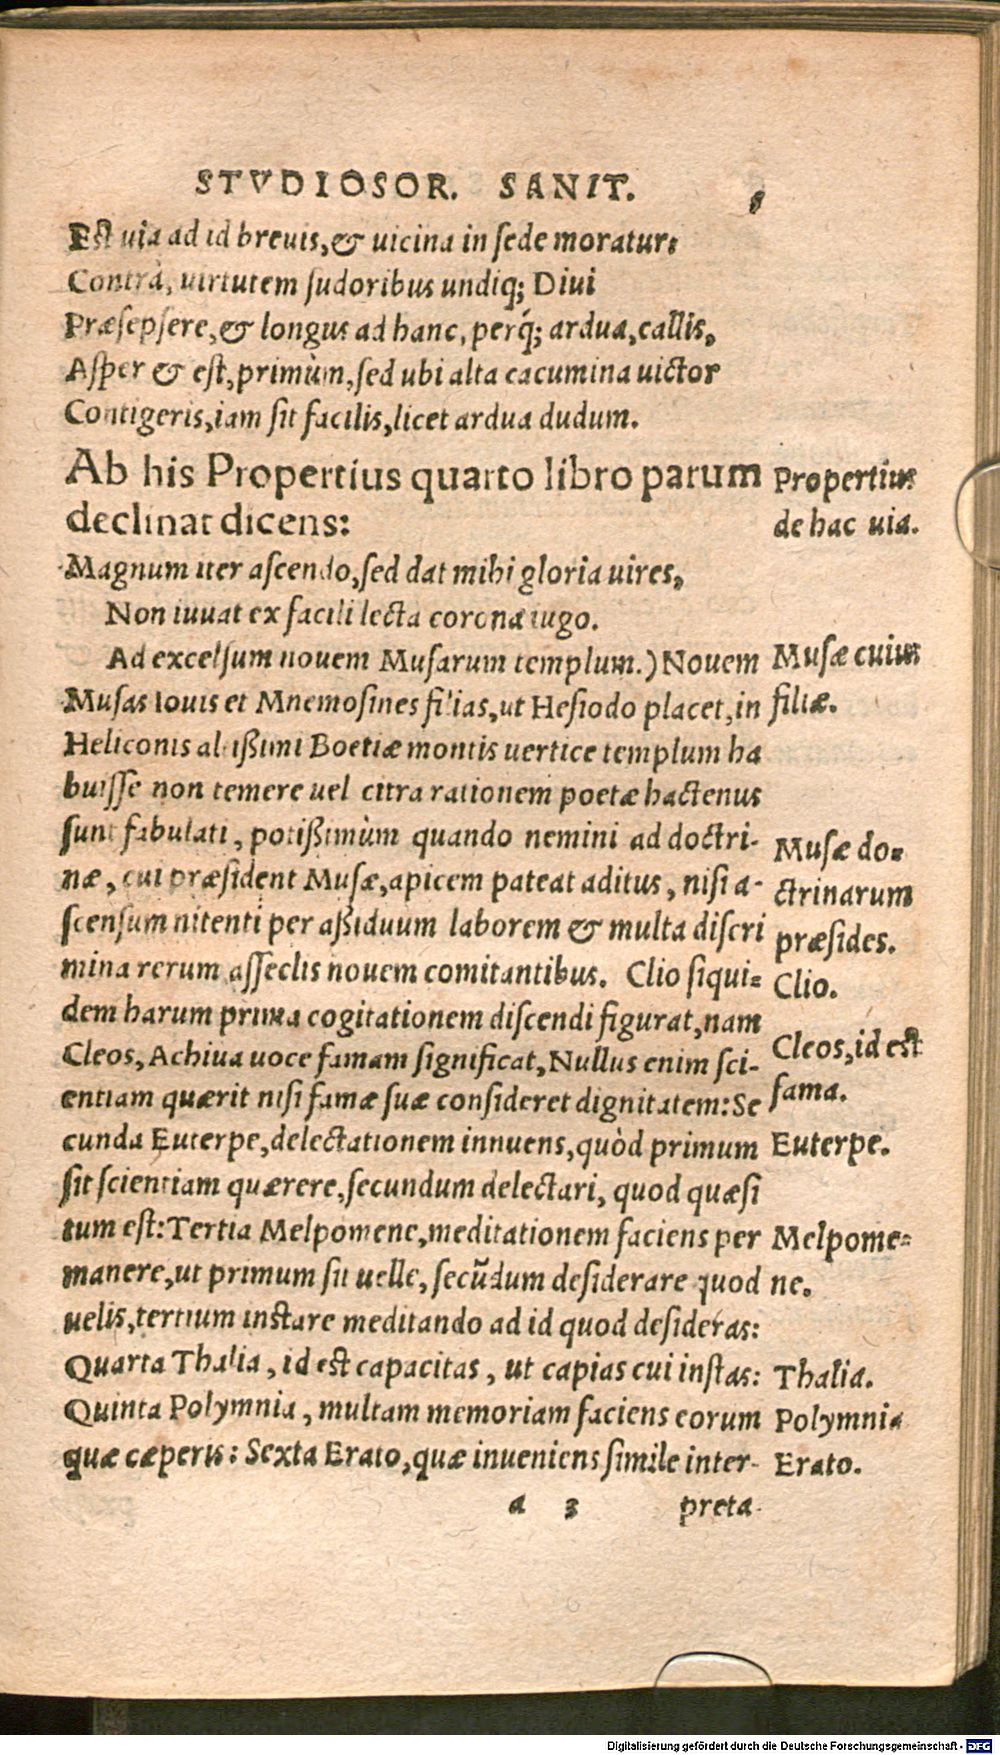 STVDIOSOR. SANIT.
Est uia ad id breuis, & uicina in sede moratur:
Contrà, uirtutem sudoribus undiq; Diui
Præsepsere, & longus ad hanc, perq́; ardua, callis,
Asper & est, primùm, sed ubi alta cacumina uictor
Contigeris, iam sit facilis, licet ardua dudum.
Ab his Propertius quarto libro parum
declinat dicens:
Propertius
de hac uia.
Magnum iter ascendo, sed dat mihi gloria uires,
Non iuuat ex facili lecta corona iugo.
Ad excelsum nouem Musarum templum.) Nouem
Musas Iouis et Mnemosines filias, ut Hesiodo placet, in
Musæ cuius
filiæ.
Heliconis altißimi Boetiæ montis uertice templum ha
buisse non temere uel citra rationem poetæ hactenus
sunt fabulati, potißimùm quando nemini ad doctri-
næ, cui præsident Musæ, apicem pateat aditus, nisi a-
scensum nitenti per aßiduum laborem & multa discri
mina rerum asseclis nouem comitantibus. Clio siqui-
Musæ do-
ctrinarum
præsides.
Clio.
dem harum prima cogitationem discendi figurat, nam
Cleos, Achiua uoce famam significat, Nullus enim sci-
entiam quærit nisi famæ suæ consideret dignitatem: Se
Cleos, id est
fama.
cunda Euterpe, delectationem innuens, quòd primum
Euterpe.
sit scientiam quærere, secundum delectari, quod quæsi
tum est: Tertia Melpomene, meditationem faciens per
manere, ut primum sit uelle, secũdum desiderare quod
Melpome-
ne.
uelis, tertium instare meditando ad id quod desideras:
Quarta Thalia, id est capacitas, ut capias cui instas:
Thalia.
Quinta Polymnia, multam memoriam faciens eorum
Polymnia
quæ cæperis: Sexta Erato, quæ inueniens simile inter-
Erato.
a 3 preta-
Digitalisierung gefördert durch die Deutsche Forschungsgemeinschaft - DFG